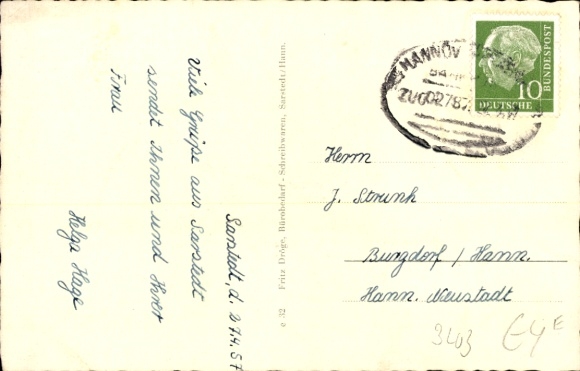 Sarstedt, d. 27.4.57
Viele Grüße aus Sarstedt
sendet Ihnen und Ihrer
Frau
Helga Hage
c 32 Fritz Dröge, Bürobedarf - Schreibwaren, Sarstedt/Hann.
HANNOV
ZUG
10
DEUTSCHE
BUNDESPOST
Herrn
J. Strunk
Burgdorf / Hann.
Hann. Neustadt
3403